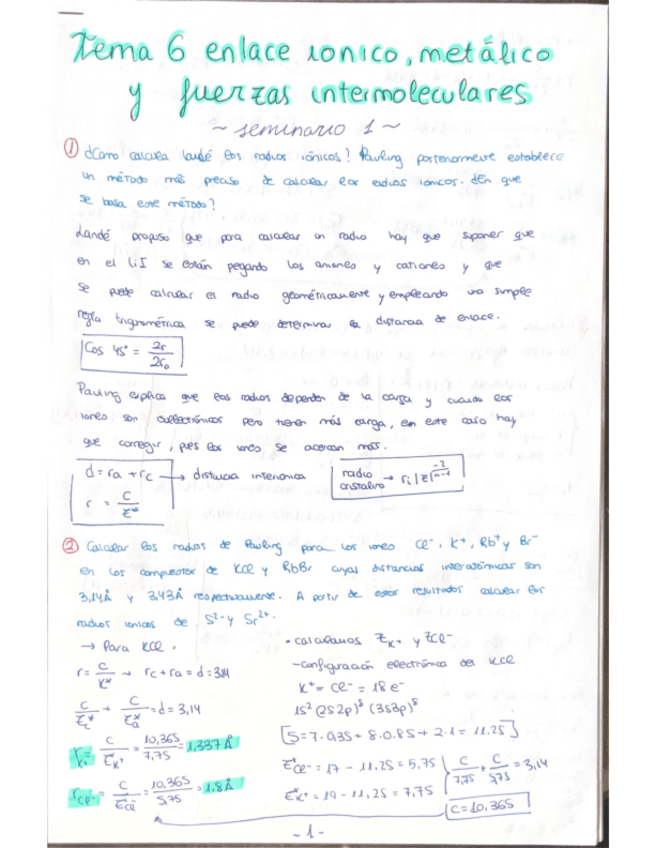 Tema 6 enlace ionico, metálico
y fuerzas intermoleculares
~ seminario 1 ~
① ¿Cómo calcula landé los radios iónicos? Pauling posteriormente establece
un método más preciso de calcular los radios ionicos. ¿En que
se basa este método?
Landé propuso que para calcular un radio hay que suponer que
en el LiI se están pegando los aniones y cationes y que
se puede calcular el radio geométricamente y empleando una simple
regla trigrométrica se puede determinar la distancia de enlace.
Cos 45° = 2r / 2r₀
Pauling explica que los radios dependen de la carga y cuando los
iones son isoelectrónicos pero tienen más carga, en este caso hay
que corregir, pues los iones se acercan más.
d = ra + rc → distancia interionica
r = C / Z*
radio cristalino → ri |Z|^(-2/(n-1))
② Calcular los radios de Pauling para los iones Cl⁻, K⁺, Rb⁺ y Br⁻
en los compuestos de KCl y RbBr cuyas distancias interatómicas son
3,14Å y 3,43Å respectivamente. A partir de estos resultados calcular los
radios ionicos de S²⁻ y Sr²⁺.
→ Para KCl,
r = C / Z* → rc + ra = d = 3,14
C / Zc* + C / Za* = d = 3,14
rK⁺ = C / ZK⁺* = 10,365 / 7,75 = 1,337 Å
rCl⁻ = C / ZCl⁻* = 10,365 / 5,75 = 1,8 Å
• calculamos ZK⁺ y ZCl⁻
- configuración electrónica del KCl
K⁺ = Cl⁻ = 18 e⁻
1s² (2s2p)⁸ (3s3p)⁸
[S = 7·0,35 + 8·0,85 + 2·1 = 11,25]
Z*Cl⁻ = 17 - 11,25 = 5,75
Z*K⁺ = 19 - 11,25 = 7,75
C / 7,75 + C / 5,75 = 3,14
C = 10,365
- 1 -